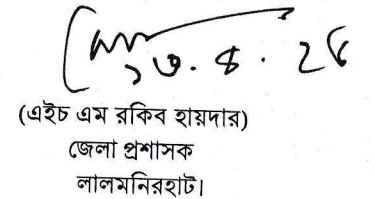 ১৩.৪.২৫
(এইচ এম রকিব হায়দার)
জেলা প্রশাসক
লালমনিরহাট।